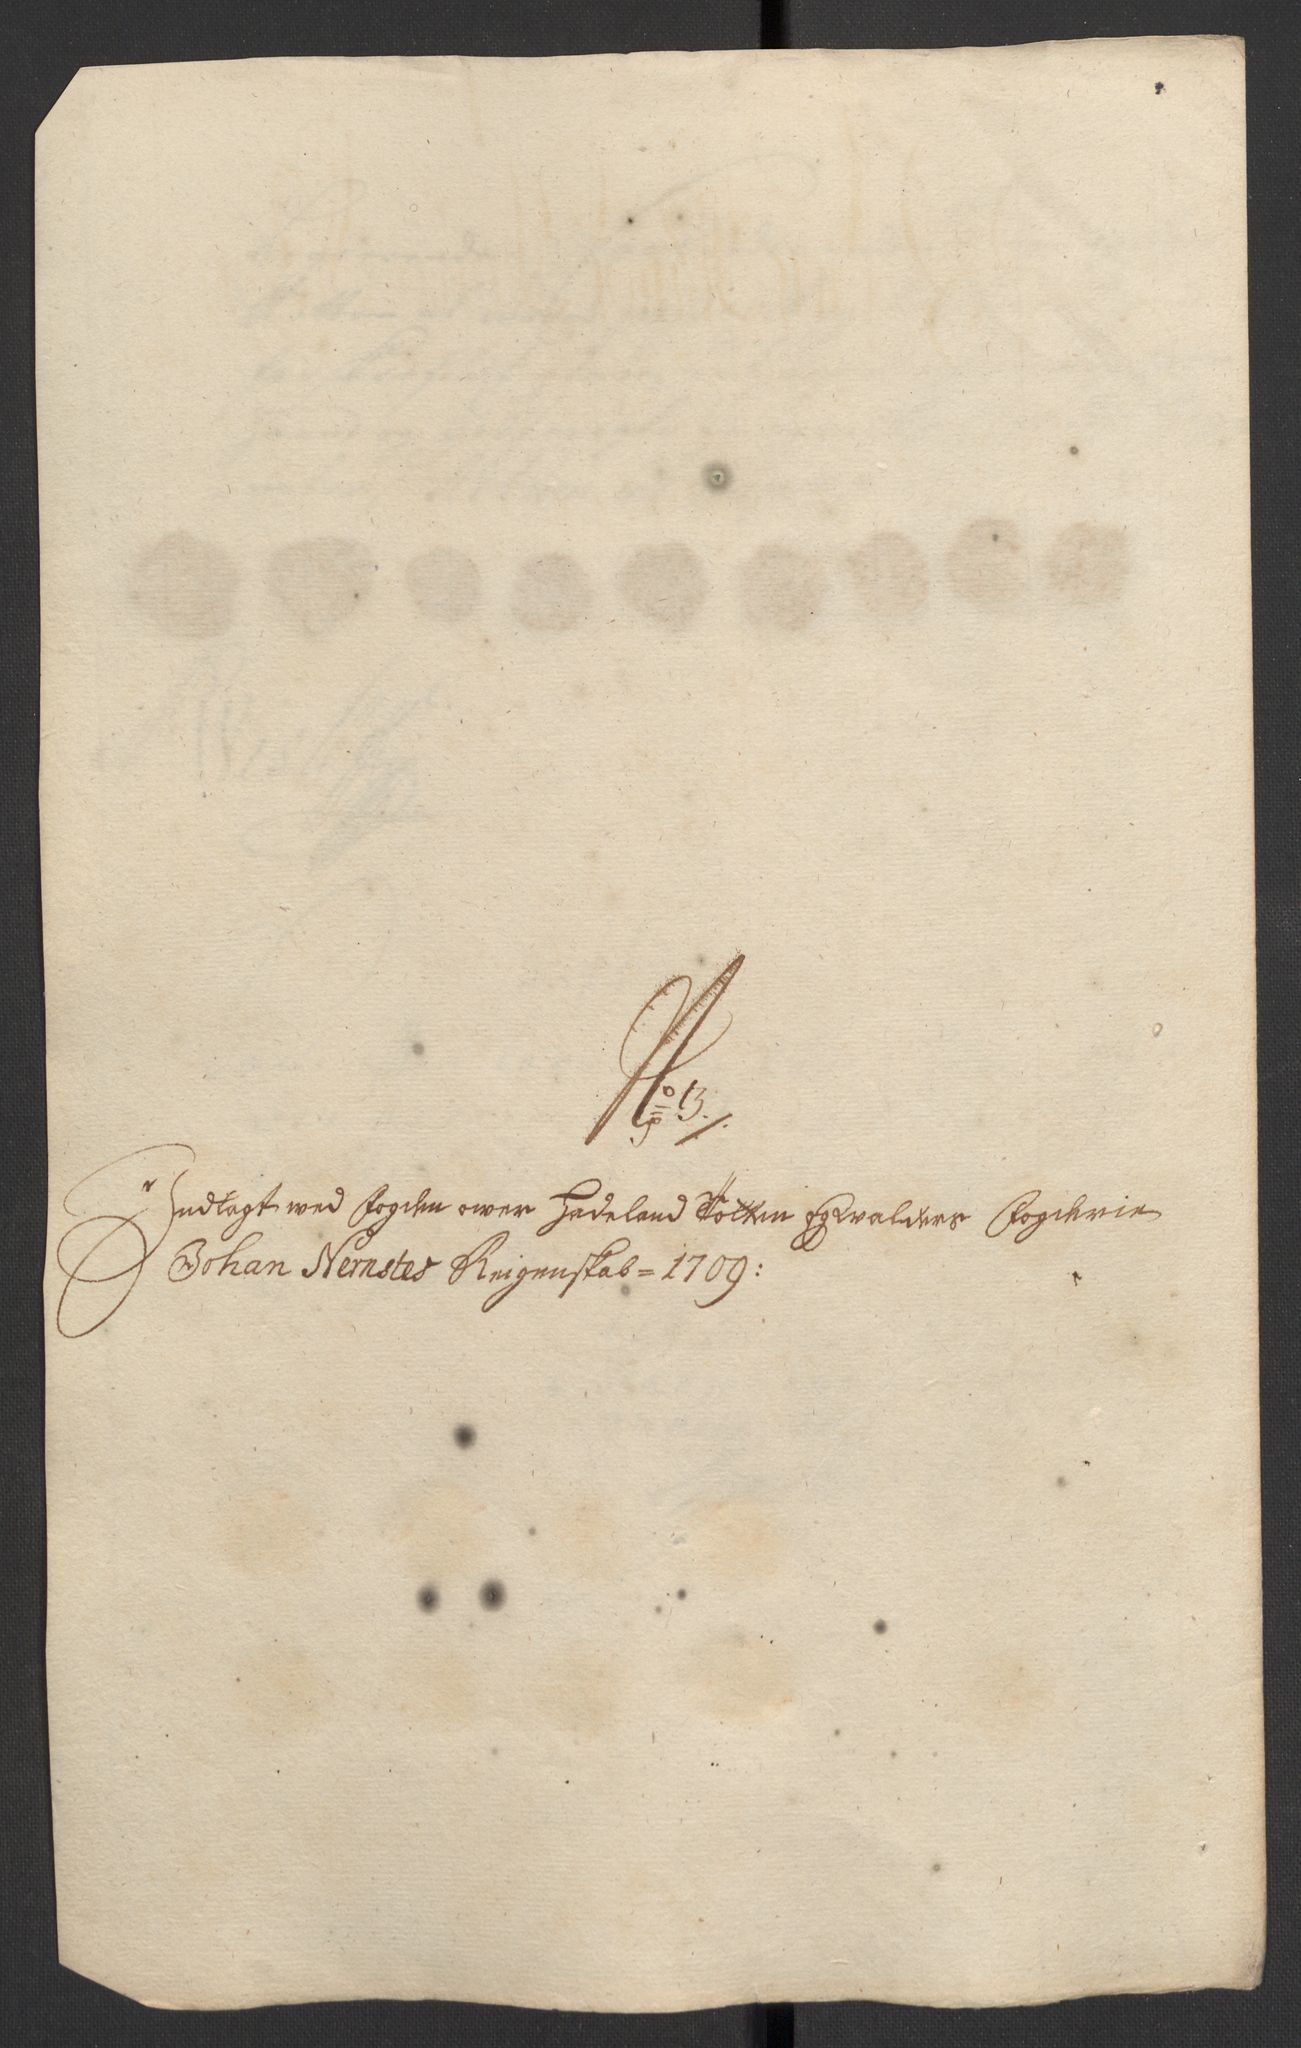 No 13.
Indlagt wed Fogden ower Hadeland Totten og Walders Fogderie
Johan Nernstes Reigenskab = 1709: